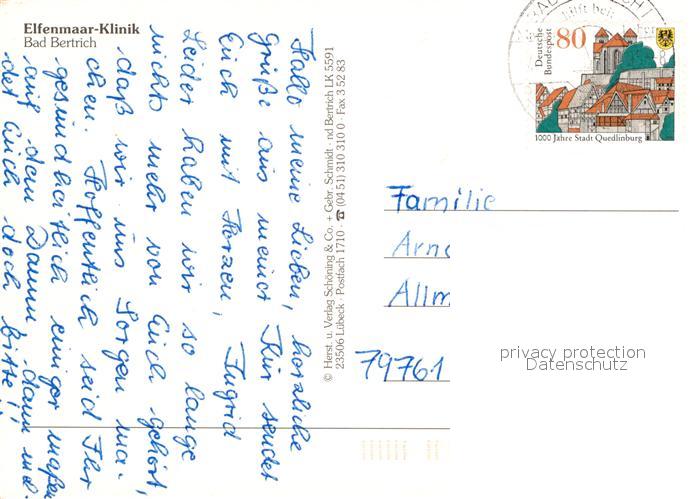 Elfenmaar-Klinik
Bad Bertrich
Hallo meine Lieben, herzliche
Grüße aus meiner Kur sendet
Euch mit Herzen, Ingrid
Leider haben wir so lange
nichts mehr von Euch gehört,
daß wir uns Sorgen ma-
chen. Hoffentlich seid Ihr
gesundheitlich einiger maßen
auf dem Damm, dann mel-
det Euch doch bitte!!
© Herst. u. Verlag Schöning & Co. + Gebr. Schmidt · nd Bertrich LK 5591
23506 Lübeck · Postfach 1710 · ☎ (04 51) 310 310 0 · Fax 3 52 83
Deutsche
Bundespost
80
1000 Jahre Stadt Quedlinburg
Familie
Arn
Allm
79761
privacy protection
Datenschutz